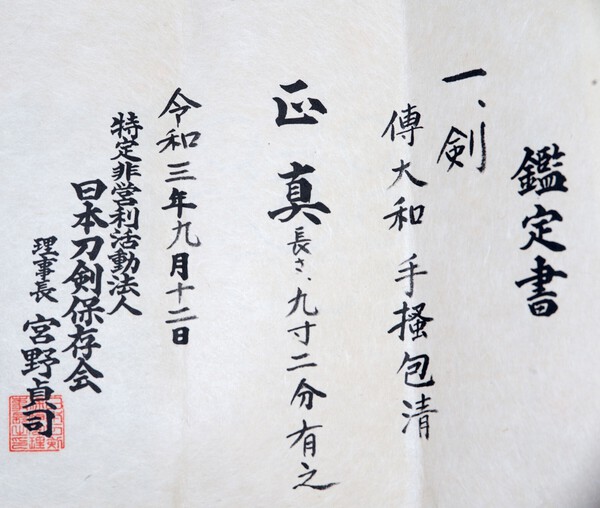 鑑定書
一、剣
傳大和手掻包清
正真
長さ、九寸二分有之
令和三年九月十二日
特定非営利活動法人
日本刀剣保存会
理事長 宮野貞司